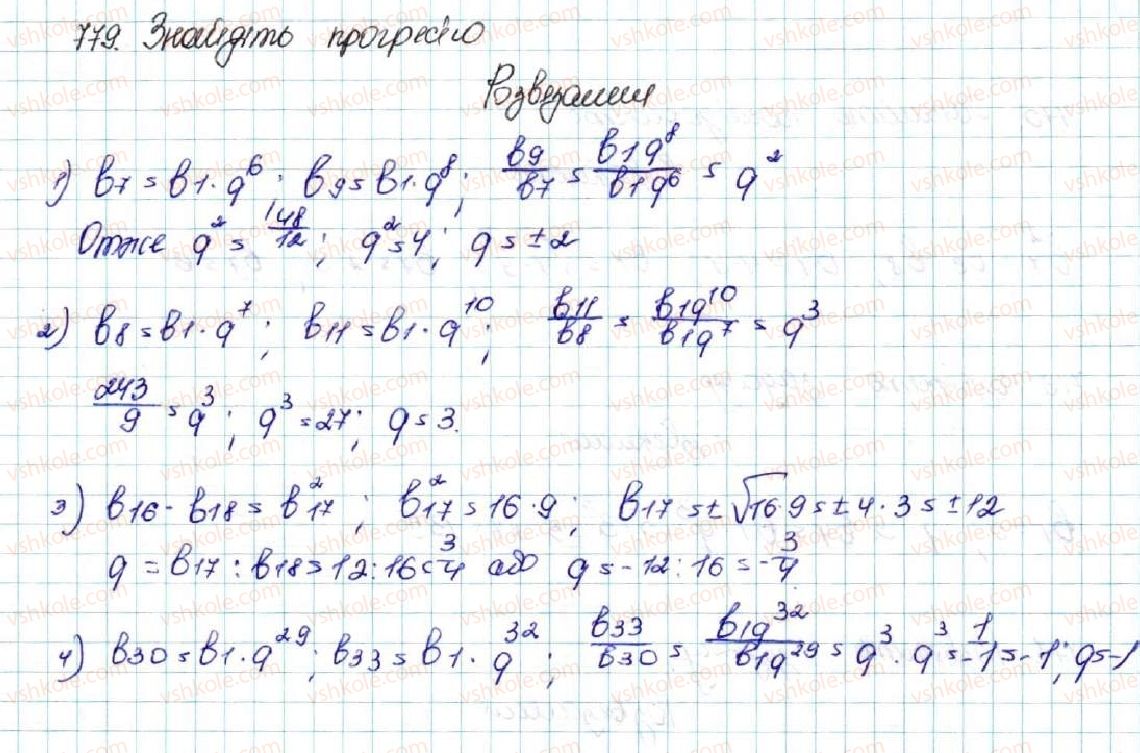 779. Знайдіть прогресію
Розвязання
1) b7 = b1·q^6; b9 = b1·q^8; b9/b7 = b1q^8/b1q^6 = q^2
Отже q^2 = 48/12; q^2 = 4; q = ±2
2) b8 = b1·q^7; b11 = b1·q^10; b11/b8 = b1q^10/b1q^7 = q^3
243/9 = q^3; q^3 = 27; q = 3.
3) b16 · b18 = b17^2; b17^2 = 16·9; b17 = ±√16·9 = ±4·3 = ±12
q = b17 : b18 = 12 : 16 = 3/4 або q = -12 : 16 = -3/4
4) b30 = b1·q^29; b33 = b1·q^32; b33/b30 = b1q^32/b1q^29 = q^3. q^3 = 1/-1 = -1; q = -1
vshkole.com